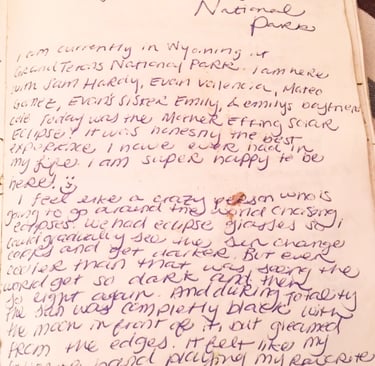 National
Park
I am currently in Wyoming at
Grand Tetons National Park. I am here
with Sam Hardy, Evan Valencia, Mateo
Evan's sister Emily, & Emilys boyfriend
Today was the Mother Effing Solar
Eclipse! It was honestly the best
experience I have ever had in
my life. I am super happy to be
here. :)
I feel like a crazy person who is
going to go around the world chasing
eclipses. We had eclipse glasses so I
could gradually see the sun change
and get darker. But even
cooler than that was seeing the
world get so dark and then
so light again. And during totality
the sun was completly black with
the moon in front of it, but gleamed
from the edges. It felt like my
band playing my favorite